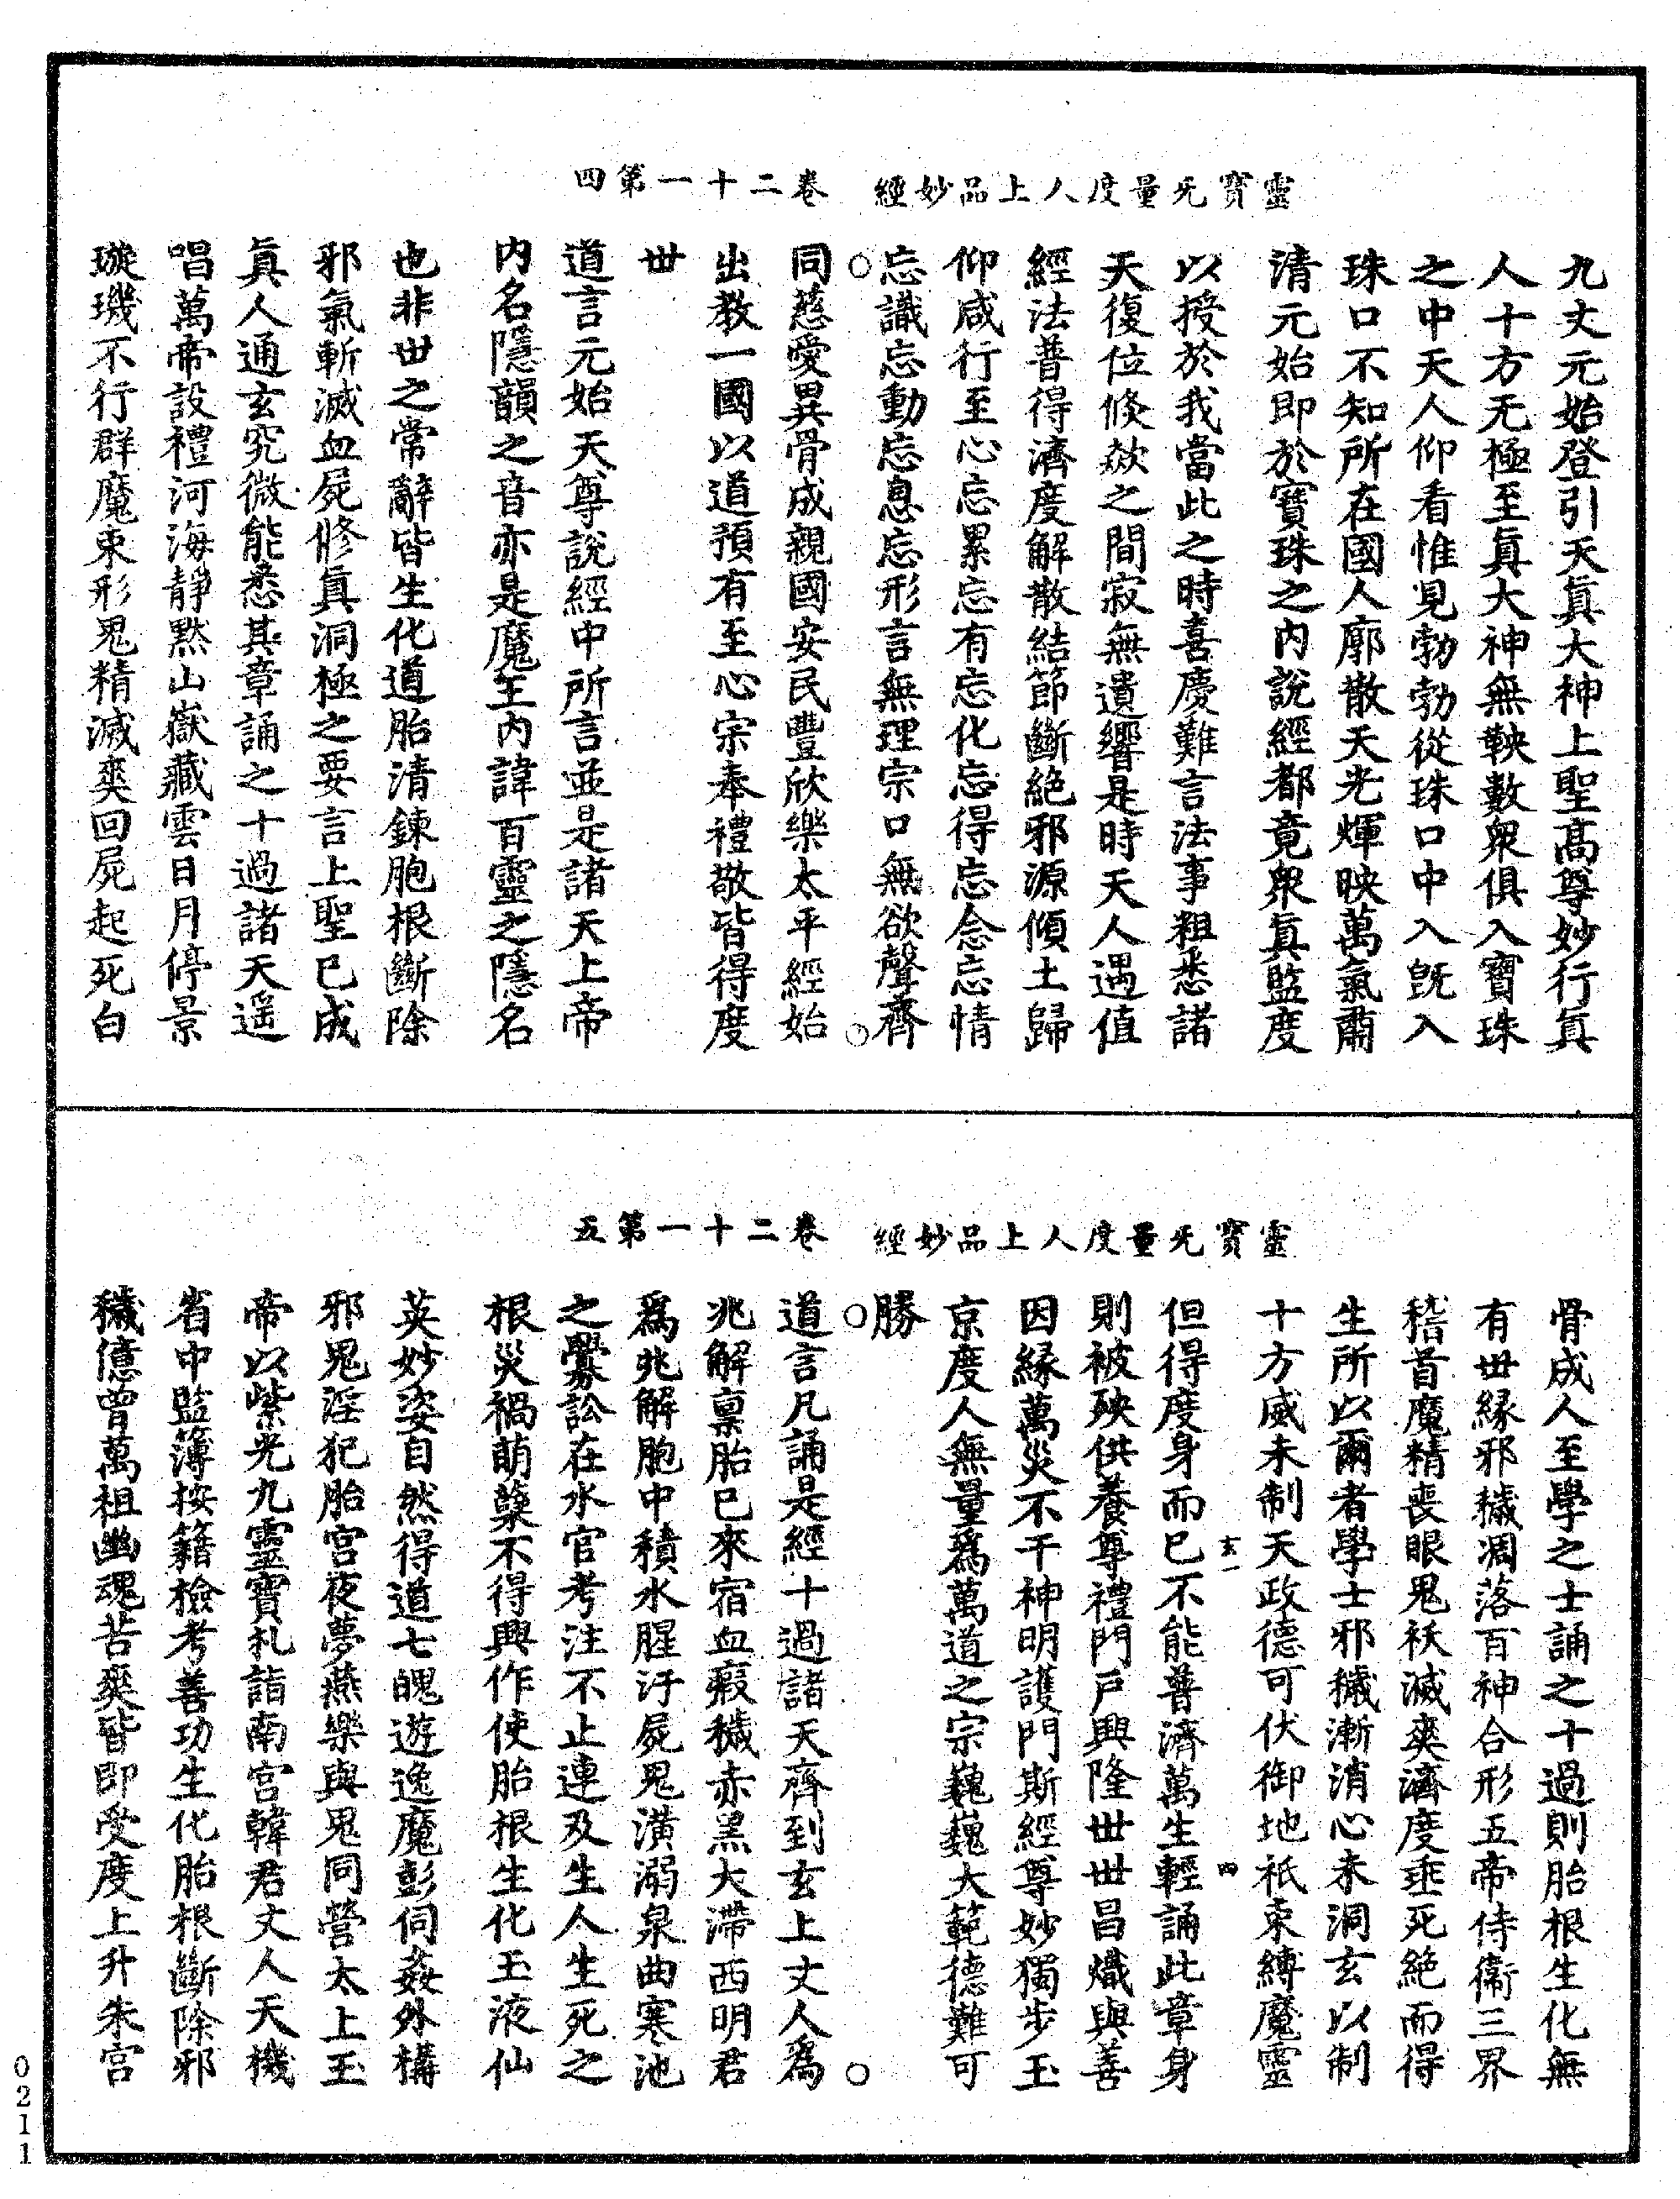 靈寶无量度人上品妙經
卷二十一第四
九丈元始登引天真大神上聖高尊妙行真
人十方无極至真大神無鞅數衆俱入寶珠
之中天人仰看惟見勃勃從珠口中入旣入
珠口不知所在國人廓散天光煇映萬氣肅
清元始即於寶珠之内說經都竟衆真監度
以授於我當此之時喜慶難言法事粗悉諸
天復位倐欻之間寂無遺響是時天人遇值
經法普得濟度解散結節斷絶邪源傾土歸
仰咸行至心忘累忘有忘化忘得忘念忘情
忘識忘動忘息忘形言無理宗口無欲聲齊
同慈愛異骨成親國安民豐欣樂太平經始
出教一國以道預有至心宗奉禮敬皆得度
世
道言元始天尊說經中所言並是諸天上帝
内名隱韻之音亦是魔王内諱百靈之隱名
也非世之常辭皆生化道胎清鍊胞根斷除
邪氣斬滅血屍修真洞極之要言上聖已成
真人通玄究微能悉其章誦之十過諸天遥
唱萬帝設禮河海靜黙山嶽藏雲日月停景
璇璣不行群魔束形鬼精滅爽回屍起死白
靈寶无量度人上品妙經
卷二十一第五
骨成人至學之士誦之十過則胎根生化無
有世緣邪穢凋落百神合形五帝侍衞三界
稽首魔精喪眼鬼祅滅爽濟度垂死絶而得
生所以爾者學士邪穢漸消心未洞玄以制
十方威未制天政德可伏御地祇束縛魔靈
玄一 四
但得度身而已不能普濟萬生輕誦此章身
則被殃供養尊禮門戶興隆世世昌熾與善
因緣萬災不干神明護門斯經尊妙獨步玉
京度人無量爲萬道之宗巍巍大範德難可
勝
道言凡誦是經十過諸天齊到玄上丈人爲
兆解稟胎已來宿血瘕穢赤黑大滯西明君
爲兆解胞中積水腥汙屍鬼潢溺泉曲寒池
之釁訟在水官考注不止連及生人生死之
根災禍萌蘖不得興作使胎根生化玉液仙
英妙姿自然得道七魄遊逸魔彭伺姦外構
邪鬼淫犯胎宮夜夢燕樂與鬼同營太上玉
帝以紫光九靈寶札詣南宮韓君丈人天機
省中監簿按籍檢考善功生化胎根斷除邪
穢億曾萬祖幽魂苦爽皆即受度上升朱宮
0211